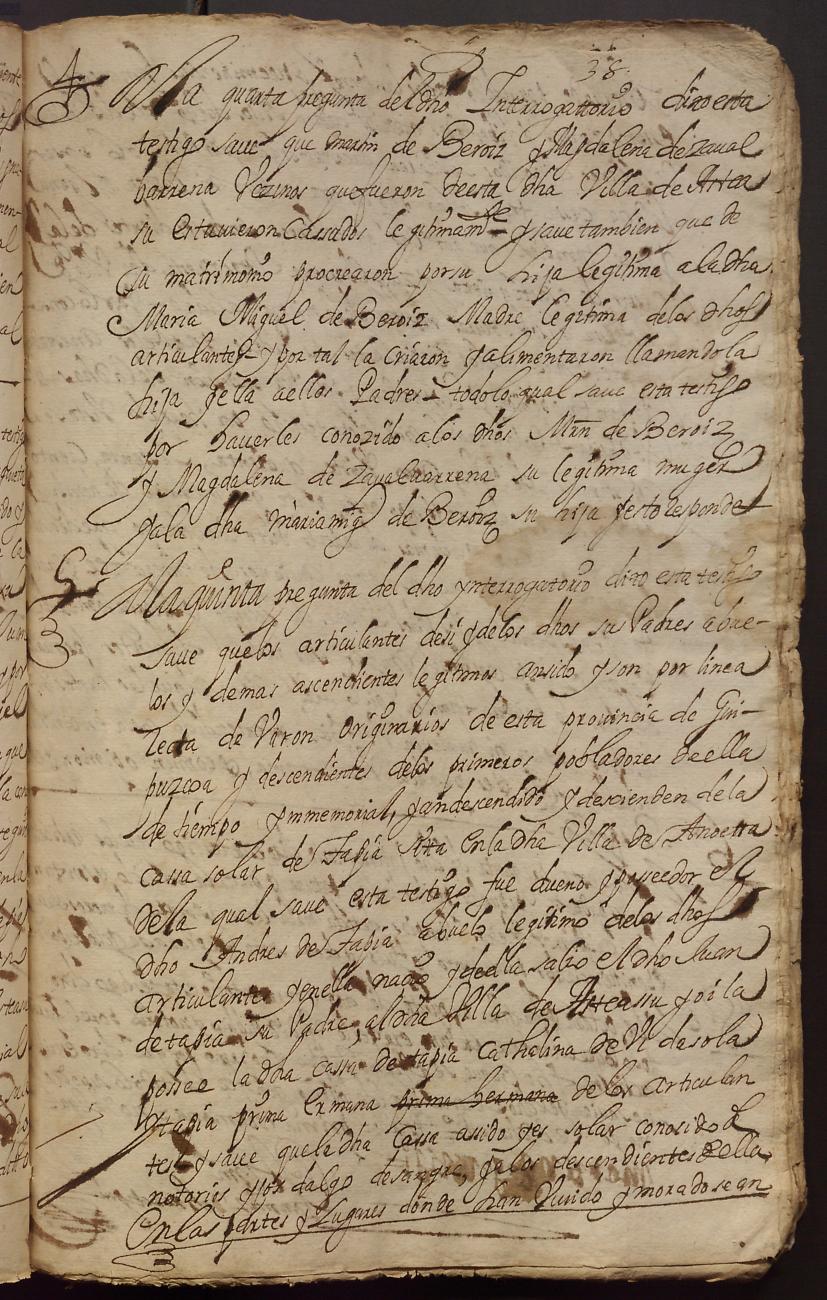 38
4 A la quarta pregunta del dho Interrogattorio dixo esta
testigo save que martin de Beroiz y Magdalena de zaual
barrena Vezinos que fueron de esta dha Villa de Astea
su estuuieron Cassados legitimamte y save tambien que de
su matrimonio procrearon por su hija legitima a la dha
Maria Miguel de Beroiz Madre legitima de los dhos
articulantes y por tal la criaron y alimentaron llamandola
hija y ella a ellos Padres todo lo qual save esta testigo
por hauerles conozido a los dhos Mrn de Beroiz
y Magdalena de Zaualbarrena su legitima muger
y a la dha maria mig de Beroiz su hija y esto responde
5 A la quinta pregunta del dho ynterrogatorio dixo esta testigo
saue que los articulantes de si y de los dhos sus Padres abue-
los y demas ascendientes legitimos an sido y son por linea
Recta de Varon Originarios de esta provincia de Gui-
puzcoa y descendientes de los primeros pobladores de ella
de tiempo ymmemorial, y an descendido y descienden de la
cassa solar de Tapia sita en la dha Villa de Anoetta
de la qual saue esta testigo fue dueño y posseedor el
dho Andres de Tapia abuelo legitimo de los dhos
articulantes y en ella nacio y de ella salio el dho Juan
de tapia su Padre, a la dha Villa de Asteassu y oi la
possee la dha cassa de tapia Cathalina de Vidasola
y tapia prima ermana prima hermana de los articulan
tes y saue que la dha Cassa a sido y es solar conosido de
notorios hijos dalgo de sangre, y a los descendientes de ella
en las partes y Lugares donde han Viuido y morado se an